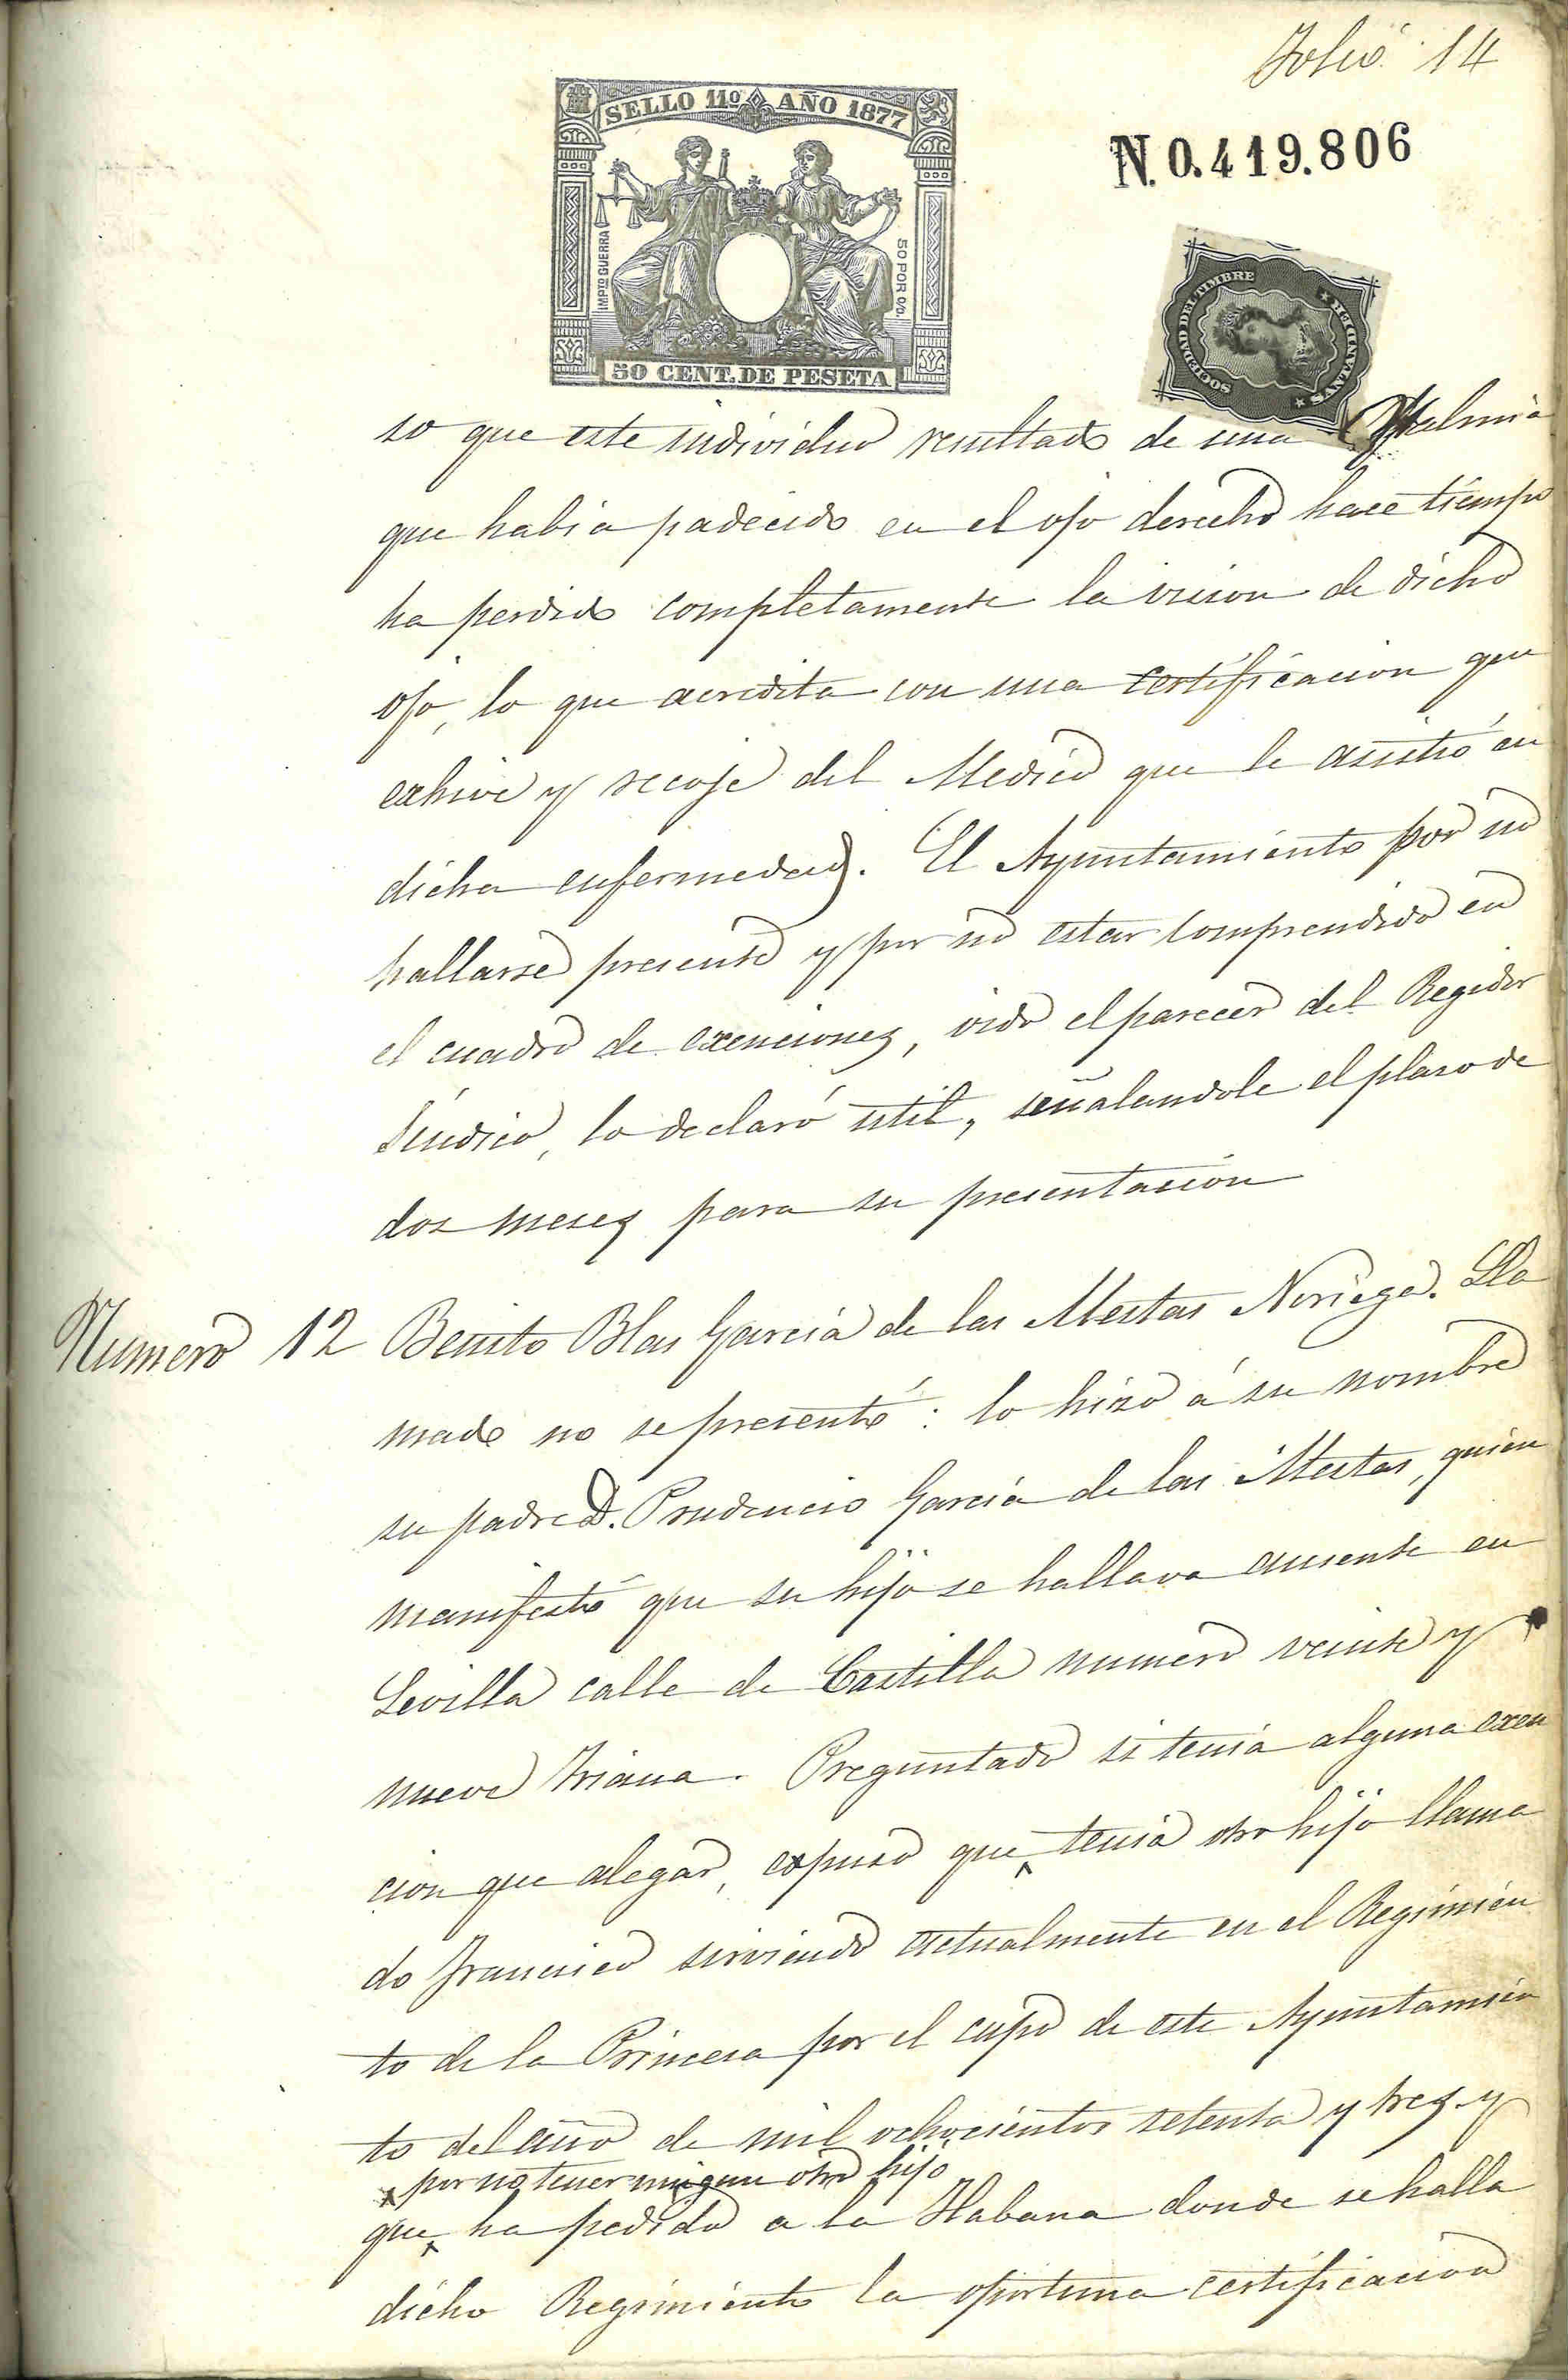 Folio 14
SELLO 11º AÑO 1877
N. 0.419.806
IMPTO GUERRA
50 POR 0/0.
50 CENT. DE PESETA
SOCIEDAD DEL TIMBRE
* SANTANDER *
so que este individuo resultado de una Oftalmia
que habia padecido en el ojo derecho hace tiempo
ha perdido completamente la vision de dicho
ojo, lo que acredita con una certificacion que
exhive y recoje del Medico que le asistió en
dicha enfermedad. El Ayuntamiento por no
hallarse presente y por no estar comprendido en
el cuadro de exenciones, oido el parecer del Regidor
Síndico, lo declaró util, señalandole el plaso de
dos meses para su presentacion
Numero 12 Benito Blas García de las Mestas Noriega. Lla
mado no se presentó: lo hizo á su nombre
su padre D. Prudencio García de las Mestas, quien
manifestó que su hijo se hallava ausente en
Sevilla calle de Castilla numero veinte y
nueve Triana. Preguntado si tenía alguna exen
cion que alegar, expuso que tenía otro hijo llama
do Francisco sirviendo actualmente en el Regimien
to de la Princesa por el cupo de este Ayuntamien
to del año de mil ochocientos setenta y tres y
por no tener ningun otro hijo
que ha pedido a la Habana donde se halla
dicho Regimiento la oportuna certificacion